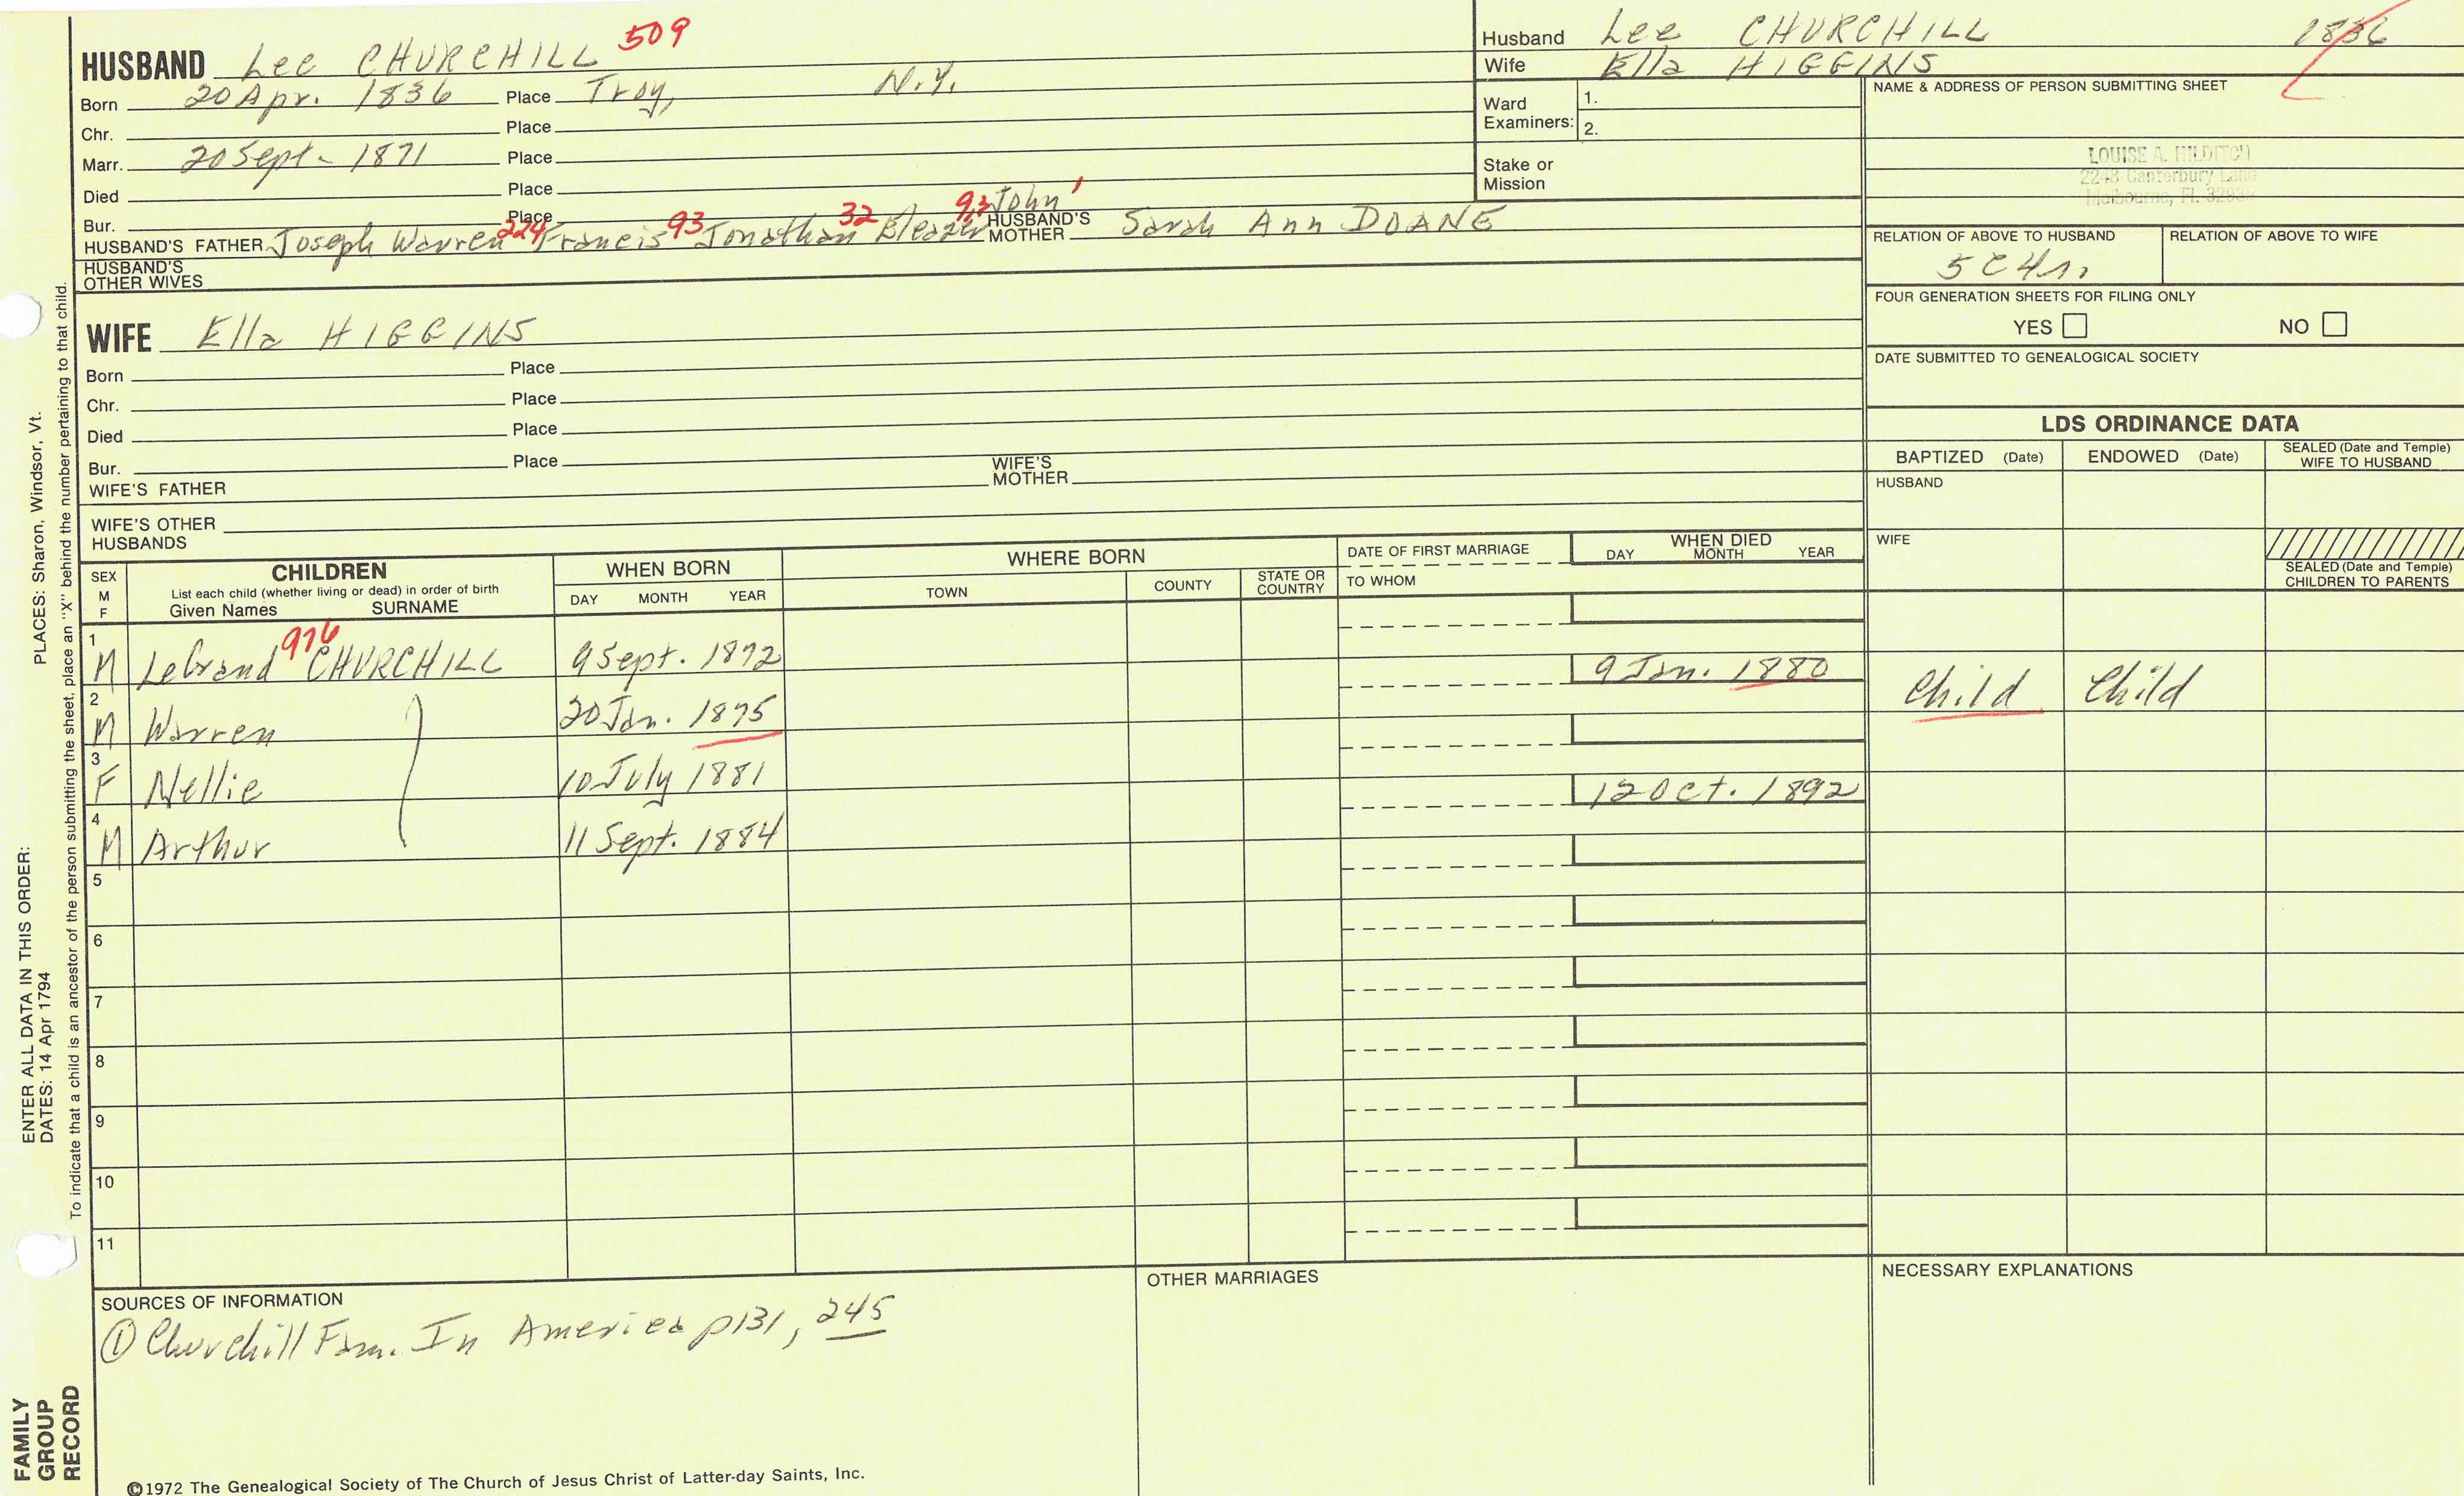 HUSBAND Lee CHURCHILL 509
Born 20 Apr. 1836 Place Troy, N.Y.
Chr. Place
Marr. 20 Sept - 1871 Place
Died Place
Bur. Place
HUSBAND'S FATHER Joseph Warren 224 Francis 93 Jonathan 32 Eleazer 9,3 John 1 HUSBAND'S MOTHER Sarah Ann DOANE
HUSBAND'S OTHER WIVES
WIFE Ella HIGGINS
Born Place
Chr. Place
Died Place
Bur. Place
WIFE'S FATHER WIFE'S MOTHER
WIFE'S OTHER HUSBANDS
Husband Lee CHURCHILL 1836
Wife Ella HIGGINS
Ward Examiners: 1.
2.
Stake or Mission
NAME & ADDRESS OF PERSON SUBMITTING SHEET
LOUISE A. HILDITCH
2248 Canterbury Lane
Melbourne, Fl.
RELATION OF ABOVE TO HUSBAND RELATION OF ABOVE TO WIFE
5C4r.
FOUR GENERATION SHEETS FOR FILING ONLY
YES NO
DATE SUBMITTED TO GENEALOGICAL SOCIETY
LDS ORDINANCE DATA
BAPTIZED (Date) ENDOWED (Date) SEALED (Date and Temple) WIFE TO HUSBAND
HUSBAND
WIFE
SEALED (Date and Temple) CHILDREN TO PARENTS
SEX M F
CHILDREN
List each child (whether living or dead) in order of birth
Given Names SURNAME
WHEN BORN
DAY MONTH YEAR
WHERE BORN
TOWN COUNTY STATE OR COUNTRY
DATE OF FIRST MARRIAGE
TO WHOM
WHEN DIED
DAY MONTH YEAR
1 M LeGrand 976 CHURCHILL 9 Sept. 1872 9 Jan. 1880 Child Child
2 M Warren 20 Jan. 1875
3 F Nellie 10 July 1881 12 Oct. 1892
4 M Arthur 11 Sept. 1884
5
6
7
8
9
10
11
SOURCES OF INFORMATION
① Churchill Fam. In America p131, 245
OTHER MARRIAGES
NECESSARY EXPLANATIONS
©1972 The Genealogical Society of The Church of Jesus Christ of Latter-day Saints, Inc.
FAMILY GROUP RECORD
ENTER ALL DATA IN THIS ORDER:
DATES: 14 Apr 1794
PLACES: Sharon, Windsor, Vt.
To indicate that a child is an ancestor of the person submitting the sheet, place an "X" behind the number pertaining to that child.